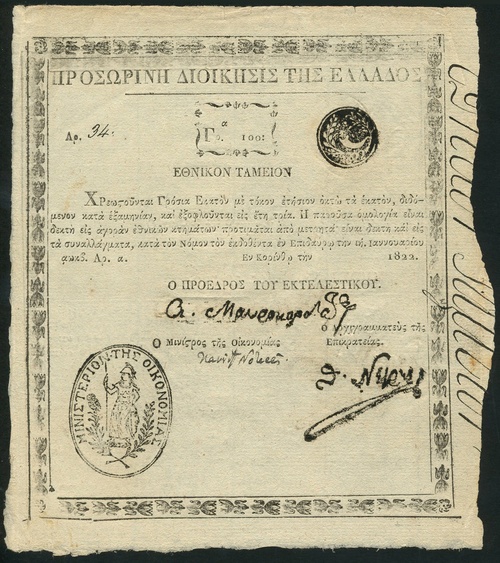 ΠΡΟΣΩΡΙΝΗ ΔΙΟΙΚΗΣΙΣ ΤΗΣ ΕΛΛΑΔΟΣ
Αρ. 34.
α
Γρ. 100:
ΕΘΝΙΚΟΝ ΤΑΜΕΙΟΝ
Χρεωςοῦνται Γρόσια Ἑκατὸν μὲ τόκον ἐτήσιον ὀκτὼ τὰ ἑκατὸν, διδό-
μενον κατὰ ἑξαμηνίαν, καὶ ἐξοφλοῦνται εἰς ἔτη τρία. Η παροῦσα ὁμολογία εἶναι
δεκτὴ εἰς ἀγορὰν ἐθνικῶν κτημάτων· προτιμᾶται ἀπὸ μετρητά· εἶναι δεκτὴ καὶ εἰς
τὰ συναλλάγματα, κατὰ τὸν Νόμον τὸν ἐκδοθέντα ἐν Ἐπιδαύρῳ τὴν Ἰαννουαρίου
αωκβ. Αρ. α. Ἐν Κορίνθῳ τὴν 1822.
Ο ΠΡΟΕΔΡΟΣ ΤΟΥ ΕΚΤΕΛΕΣΤΙΚΟΥ.
Α. Μαυροκορδ
Ὁ Ἀρχιγραμματεὺς τῆς
Ὁ Μινίστρος τῆς Οἰκονομίας Ἐπικρατείας.
Θ. Νέγρης
ΜΙΝΙΣΤΕΡΙΟΝ ΤΗΣ ΟΙΚΟΝΟΜΙΑΣ